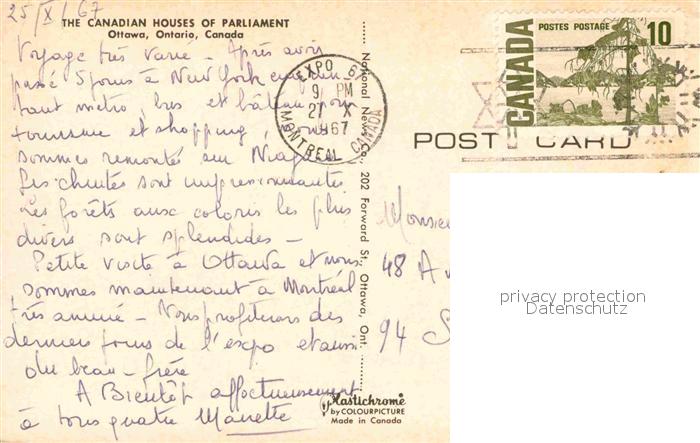 25/X/67
THE CANADIAN HOUSES OF PARLIAMENT
Ottawa, Ontario, Canada
Voyage très varié - Après avoir
passé 5 jours à New York
métro, bus et bâteau, pour
tourisme et shopping, nous
sommes remonté sur Niagara
Les chutes sont impressionnantes
Les forêts aux coloris les plus
divers sont splendides -
Petite visite à Ottawa et nous
sommes maintenant à Montréal
très animé - Nous profiterons des
derniers jours de l'expo et aussi
du beau-frère
A Bientôt affectueusement
à tous quatre
National News Co., 202 Forward St., Ottawa, Ont.
Plastichrome
by COLOURPICTURE
Made in Canada
EXPO 67
9 PM
27 X
1967
MONTREAL CANADA
CANADA
POSTES POSTAGE
10
POST CARD
Monsieur
48 A
94 S
privacy protection
Datenschutz